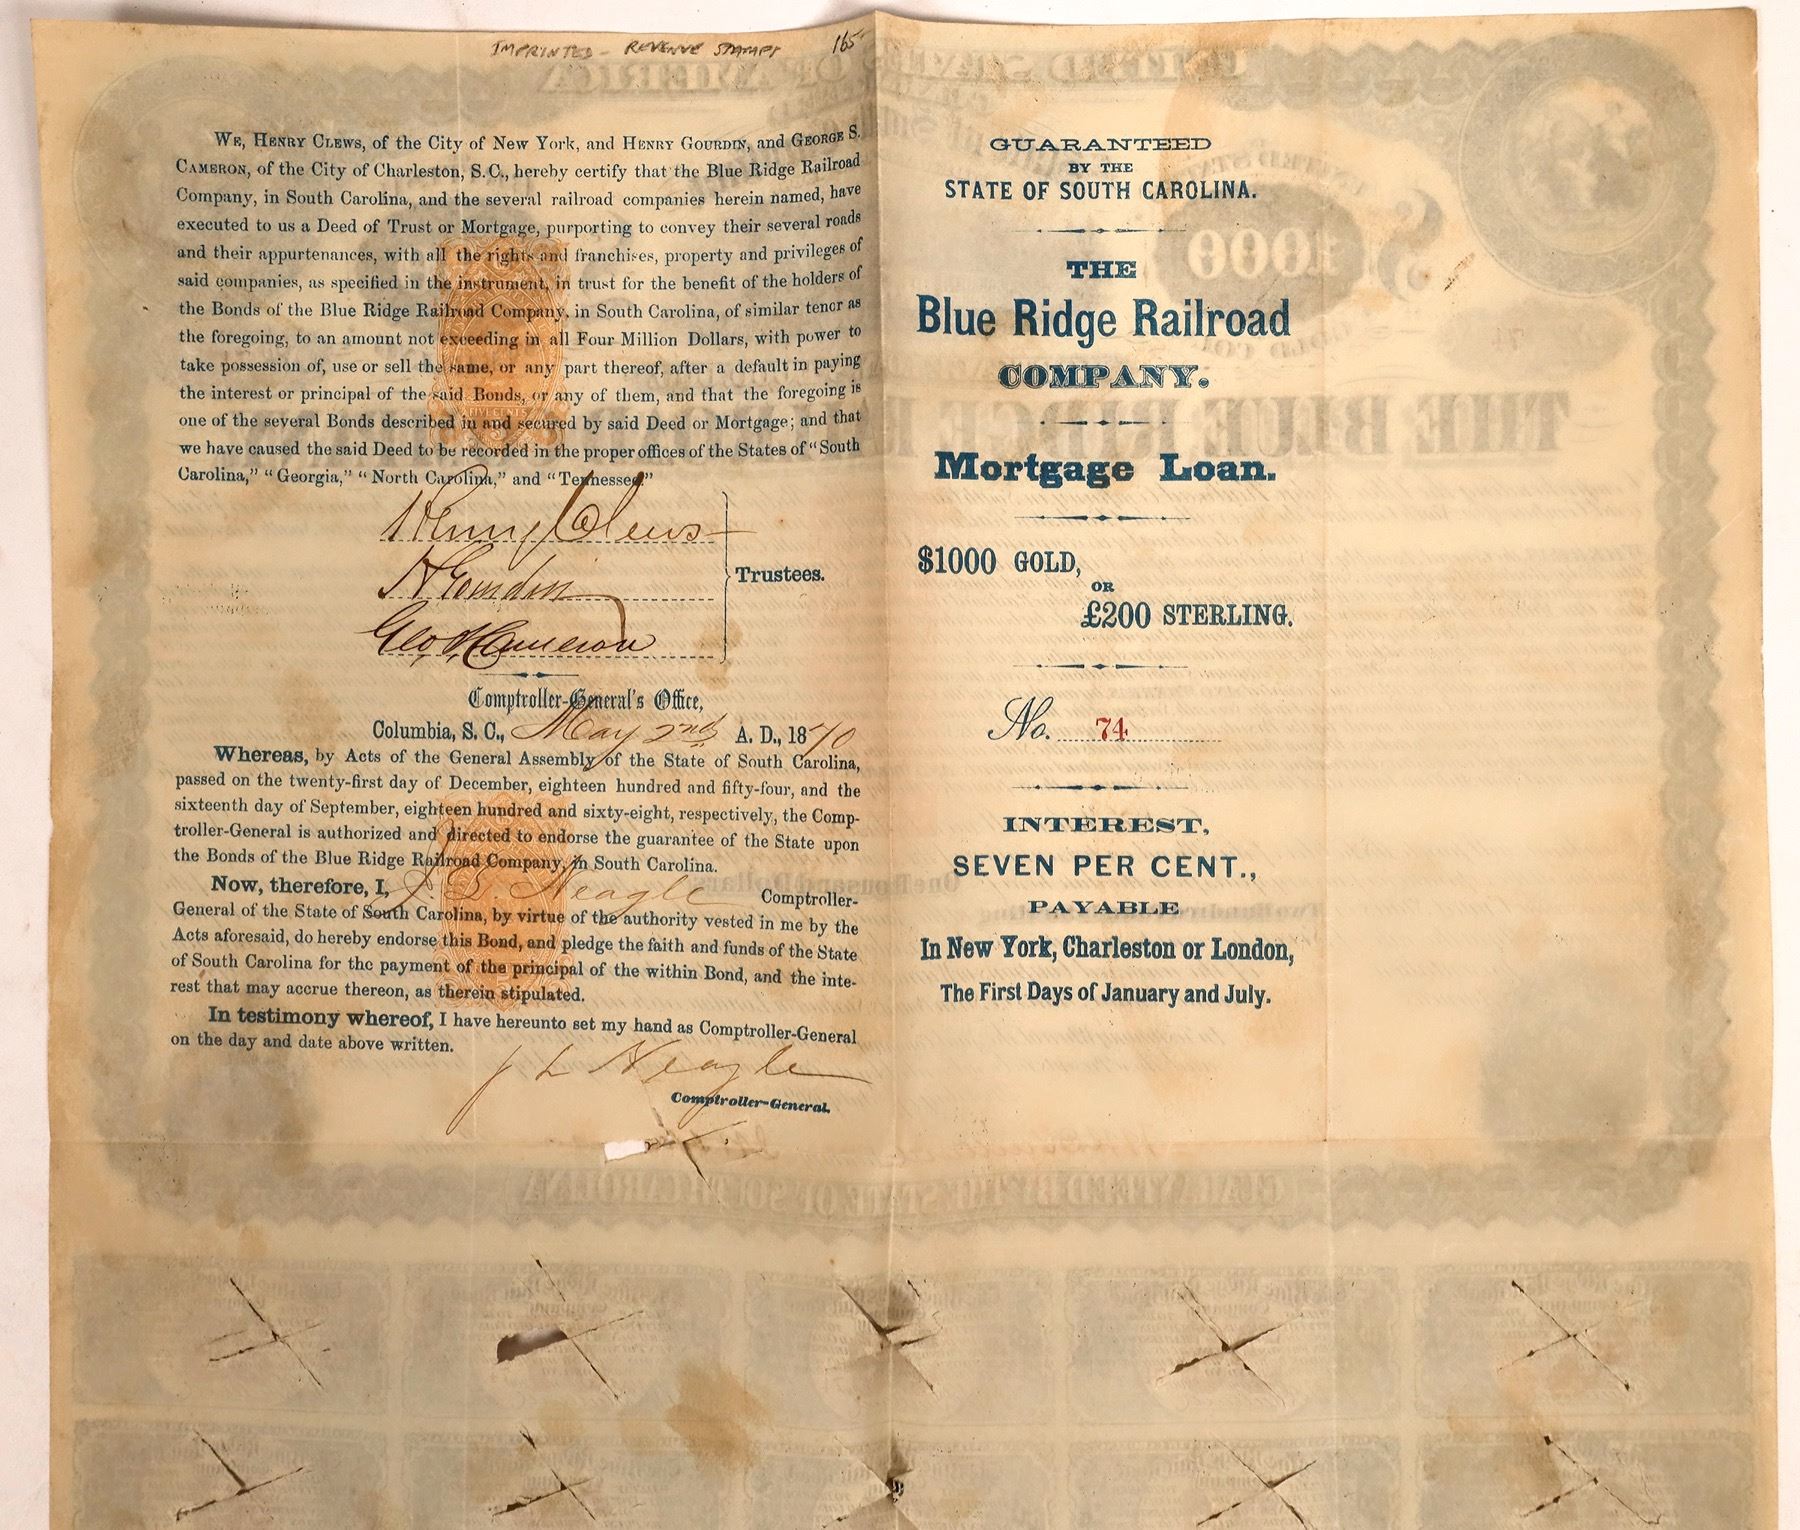 IMPRINTED - REVENUE STAMPS 165
WE, HENRY CLEWS, of the City of New York, and HENRY GOURDIN, and GEORGE S.
CAMERON, of the City of Charleston, S. C., hereby certify that the Blue Ridge Railroad
Company, in South Carolina, and the several railroad companies herein named, have
executed to us a Deed of Trust or Mortgage, purporting to convey their several roads
and their appurtenances, with all the rights and franchises, property and privileges of
said companies, as specified in the instrument, in trust for the benefit of the holders of
the Bonds of the Blue Ridge Railroad Company, in South Carolina, of similar tenor as
the foregoing, to an amount not exceeding in all Four Million Dollars, with power to
take possession of, use or sell the same, or any part thereof, after a default in paying
the interest or principal of the said Bonds, or any of them, and that the foregoing is
one of the several Bonds described in and secured by said Deed or Mortgage; and that
we have caused the said Deed to be recorded in the proper offices of the States of "South
Carolina," "Georgia," "North Carolina," and "Tennessee."
FIVE CENTS
Henry Clews
H Gourdin
Geo. S. Cameron
Trustees.
Comptroller-General's Office,
Columbia, S. C., May 2nd A. D., 1870
Whereas, by Acts of the General Assembly of the State of South Carolina,
passed on the twenty-first day of December, eighteen hundred and fifty-four, and the
sixteenth day of September, eighteen hundred and sixty-eight, respectively, the Comp-
troller-General is authorized and directed to endorse the guarantee of the State upon
the Bonds of the Blue Ridge Railroad Company, in South Carolina.
Now, therefore, I, J. L. Neagle Comptroller-
General of the State of South Carolina, by virtue of the authority vested in me by the
Acts aforesaid, do hereby endorse this Bond, and pledge the faith and funds of the State
of South Carolina for the payment of the principal of the within Bond, and the inte-
rest that may accrue thereon, as therein stipulated.
In testimony whereof, I have hereunto set my hand as Comptroller-General
on the day and date above written.
J L Neagle
Comptroller-General.
GUARANTEED
BY THE
STATE OF SOUTH CAROLINA.
THE
Blue Ridge Railroad
COMPANY.
Mortgage Loan.
$1000 GOLD,
OR
£200 STERLING.
No. 74
INTEREST,
SEVEN PER CENT.,
PAYABLE
In New York, Charleston or London,
The First Days of January and July.